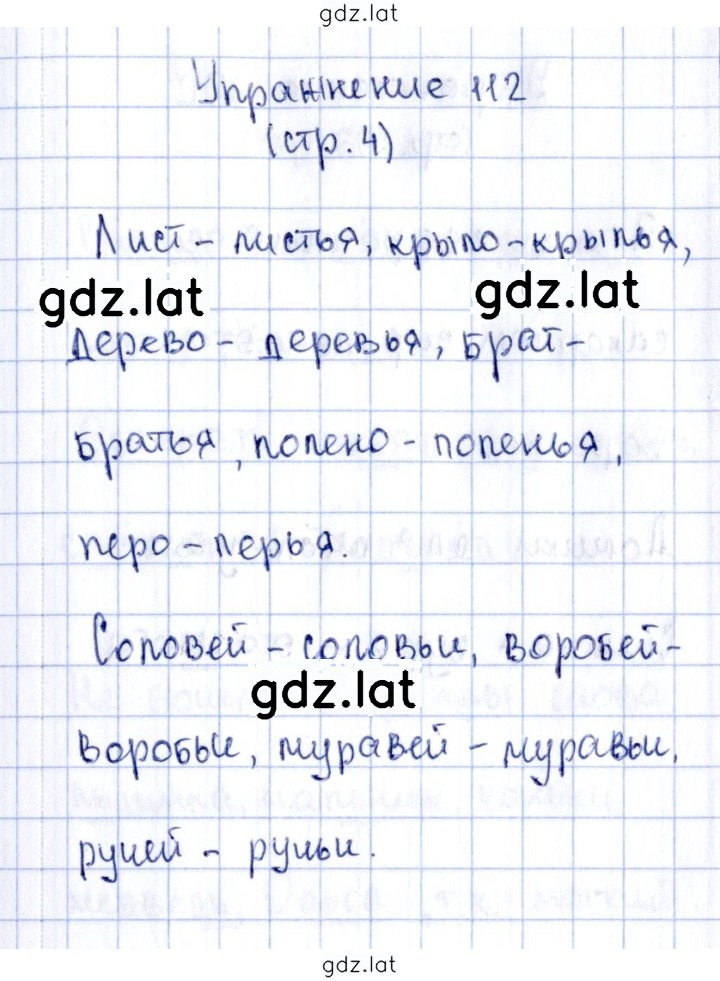 gdz.lat
Упражнение 112
(стр. 4)
Лист - листья, крыло - крылья,
gdz.lat gdz.lat
дерево - деревья, брат -
братья, полено - поленья,
перо - перья.
Соловей - соловьи, воробей -
gdz.lat
воробьи, муравей - муравьи,
ручей - ручьи.
gdz.lat